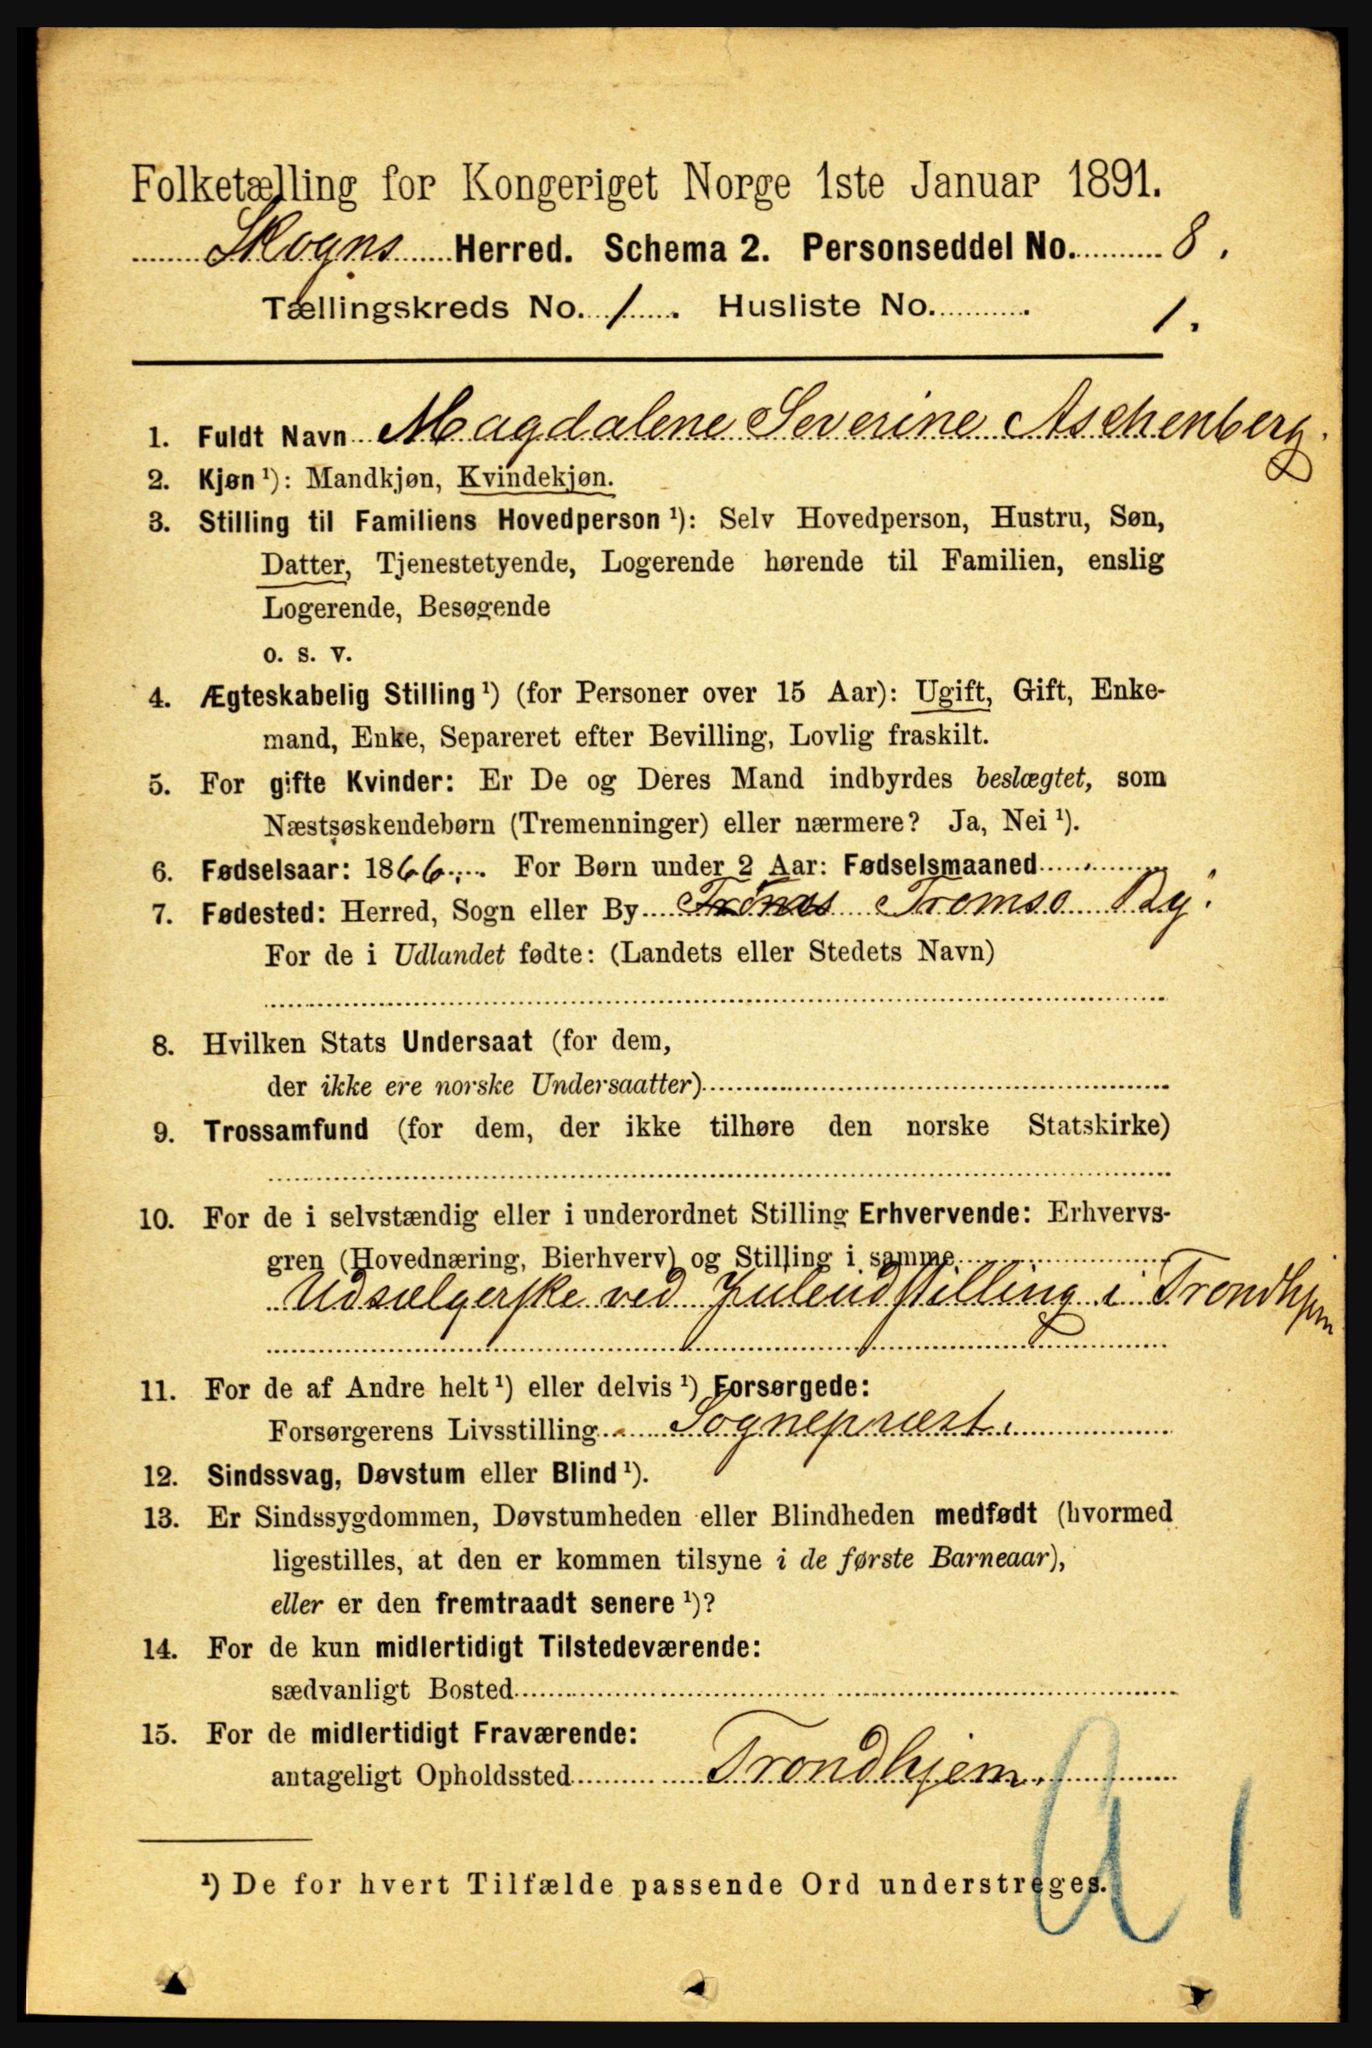 Folketælling for Kongeriget Norge 1ste Januar 1891.
Skogns Herred. Schema 2. Personseddel No. 8.
Tællingskreds No. 1. Husliste No. 1.
1. Fuldt Navn Magdalene Severine Aschenberg.
2. Kjøn ¹): Mandkjøn, Kvindekjøn.
3. Stilling til Familiens Hovedperson ¹): Selv Hovedperson, Hustru, Søn,
Datter, Tjenestetyende, Logerende hørende til Familien, enslig
Logerende, Besøgende
o. s. v.
4. Ægteskabelig Stilling ¹) (for Personer over 15 Aar): Ugift, Gift, Enke-
mand, Enke, Separeret efter Bevilling, Lovlig fraskilt.
5. For gifte Kvinder: Er De og Deres Mand indbyrdes beslægtet, som
Næstsøskendebørn (Tremenninger) eller nærmere? Ja, Nei ¹).
6. Fødselsaar: 1866. For Børn under 2 Aar: Fødselsmaaned
7. Fødested: Herred, Sogn eller By Tromso By.
For de i Udlandet fødte: (Landets eller Stedets Navn)
8. Hvilken Stats Undersaat (for dem,
der ikke ere norske Undersaatter)
9. Trossamfund (for dem, der ikke tilhøre den norske Statskirke)
10. For de i selvstændig eller i underordnet Stilling Erhvervende: Erhvervs-
gren (Hovednæring, Bierhverv) og Stilling i samme
Udsælgerske ved Juleudstilling i Trondhjem
11. For de af Andre helt ¹) eller delvis ¹) Forsørgede:
Forsørgerens Livsstilling Sogneprest.
12. Sindssvag, Døvstum eller Blind ¹).
13. Er Sindssygdommen, Døvstumheden eller Blindheden medfødt (hvormed
ligestilles, at den er kommen tilsyne i de første Barneaar),
eller er den fremtraadt senere ¹)?
14. For de kun midlertidigt Tilstedeværende:
sædvanligt Bosted
15. For de midlertidigt Fraværende:
antageligt Opholdssted Trondhjem.
¹) De for hvert Tilfælde passende Ord understreges.